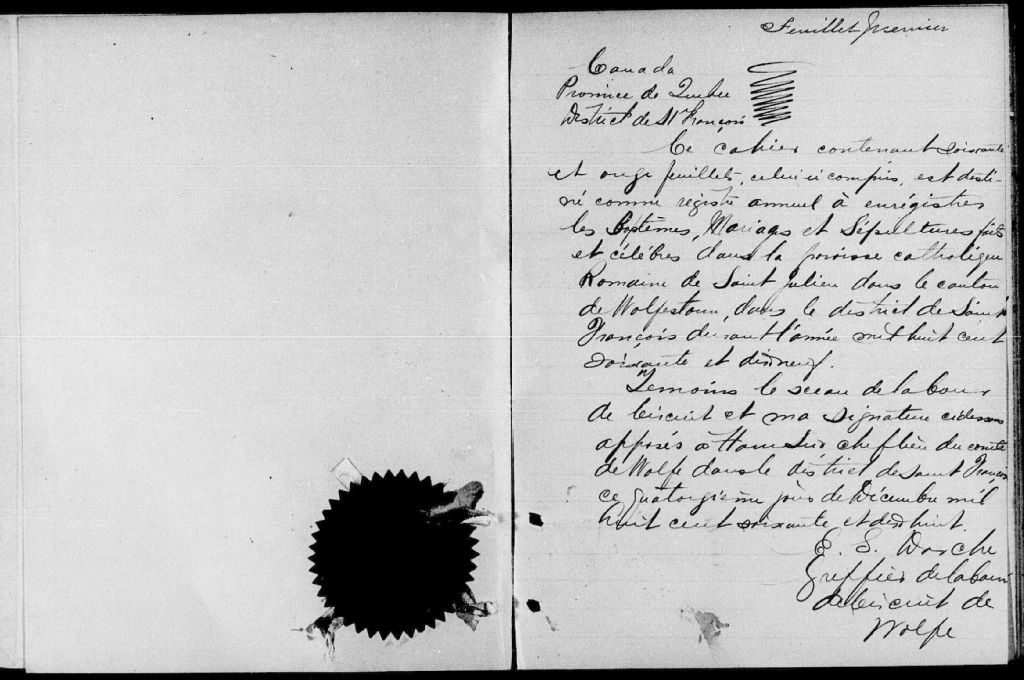 Feuillet premier
Canada
Province de Quebec
District de St François
Ce cahier contenant soixante
et onze feuillets, celui ci compris, est desti-
né comme régistre annuel à enrégistrer
les Baptêmes, Mariages et Sépultures faits
et célébrés dans la paroisse catholique
Romaine de Saint Julien dans le canton
de Wolfestown, dans le district de Saint
François durant l'année mil huit cent
soixante et dixneuf.
Temoins le sceau de la Cour
de Circuit et ma signature cidessous
apposés à Ham Sud cheflieu du comté
de Wolfe dans le district de Saint François
ce quatorzième jour de Décembre mil
huit cent soixante et dix huit.
E. S. Darche
Greffier de la Cour
de Circuit de
Wolfe